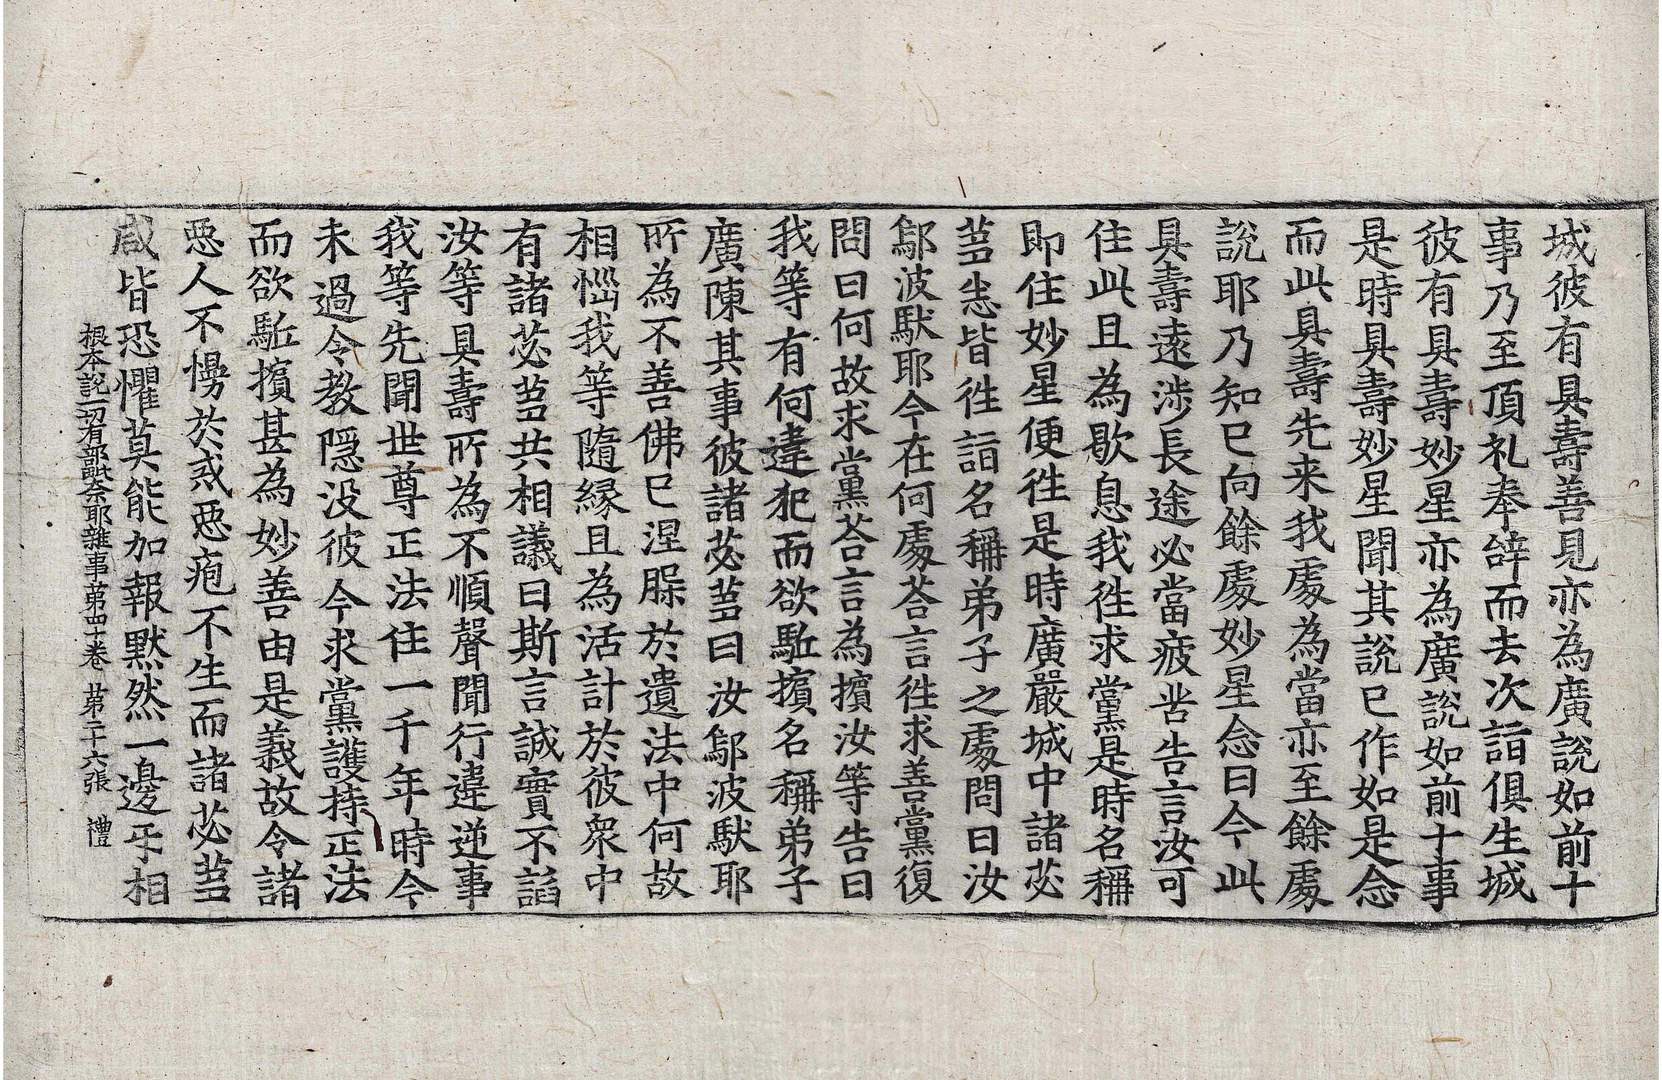 城彼有具壽善見亦為廣說如前十
事乃至頂礼奉辝而去次詣俱生城
彼有具壽妙星亦為廣說如前十事
是時具壽妙星聞其說已作如是念
而此具壽先来我處為當亦至餘處
說耶乃知已向餘處妙星念曰今此
具壽遠涉長途必當疲苦告言汝可
住此且為歇息我徃求黨是時名稱
即住妙星便徃是時廣嚴城中諸苾
蒭悉皆徃詣名稱弟子之處問曰汝
鄔波馱耶今在何處荅言徃求善黨復
問曰何故求黨荅言為擯汝等告曰
我等有何違犯而欲駈擯名稱弟子
廣陳其事彼諸苾蒭曰汝鄔波馱耶
所為不善佛已涅槃於遺法中何故
相惱我等隨緣且為活計於彼衆中
有諸苾蒭共相議曰斯言誠實不謟
汝等具壽所為不順聲聞行違逆事
我等先聞世尊正法住一千年時今
未過令教隱没彼今求黨護持正法
而欲駈擯甚為妙善由是義故令諸
惡人不慢於戒惡疱不生而諸苾蒭
咸皆恐懼莫能加報默然一邊乎相
根本說一切有部毗奈耶雜事第四十卷 第二十六張 禮